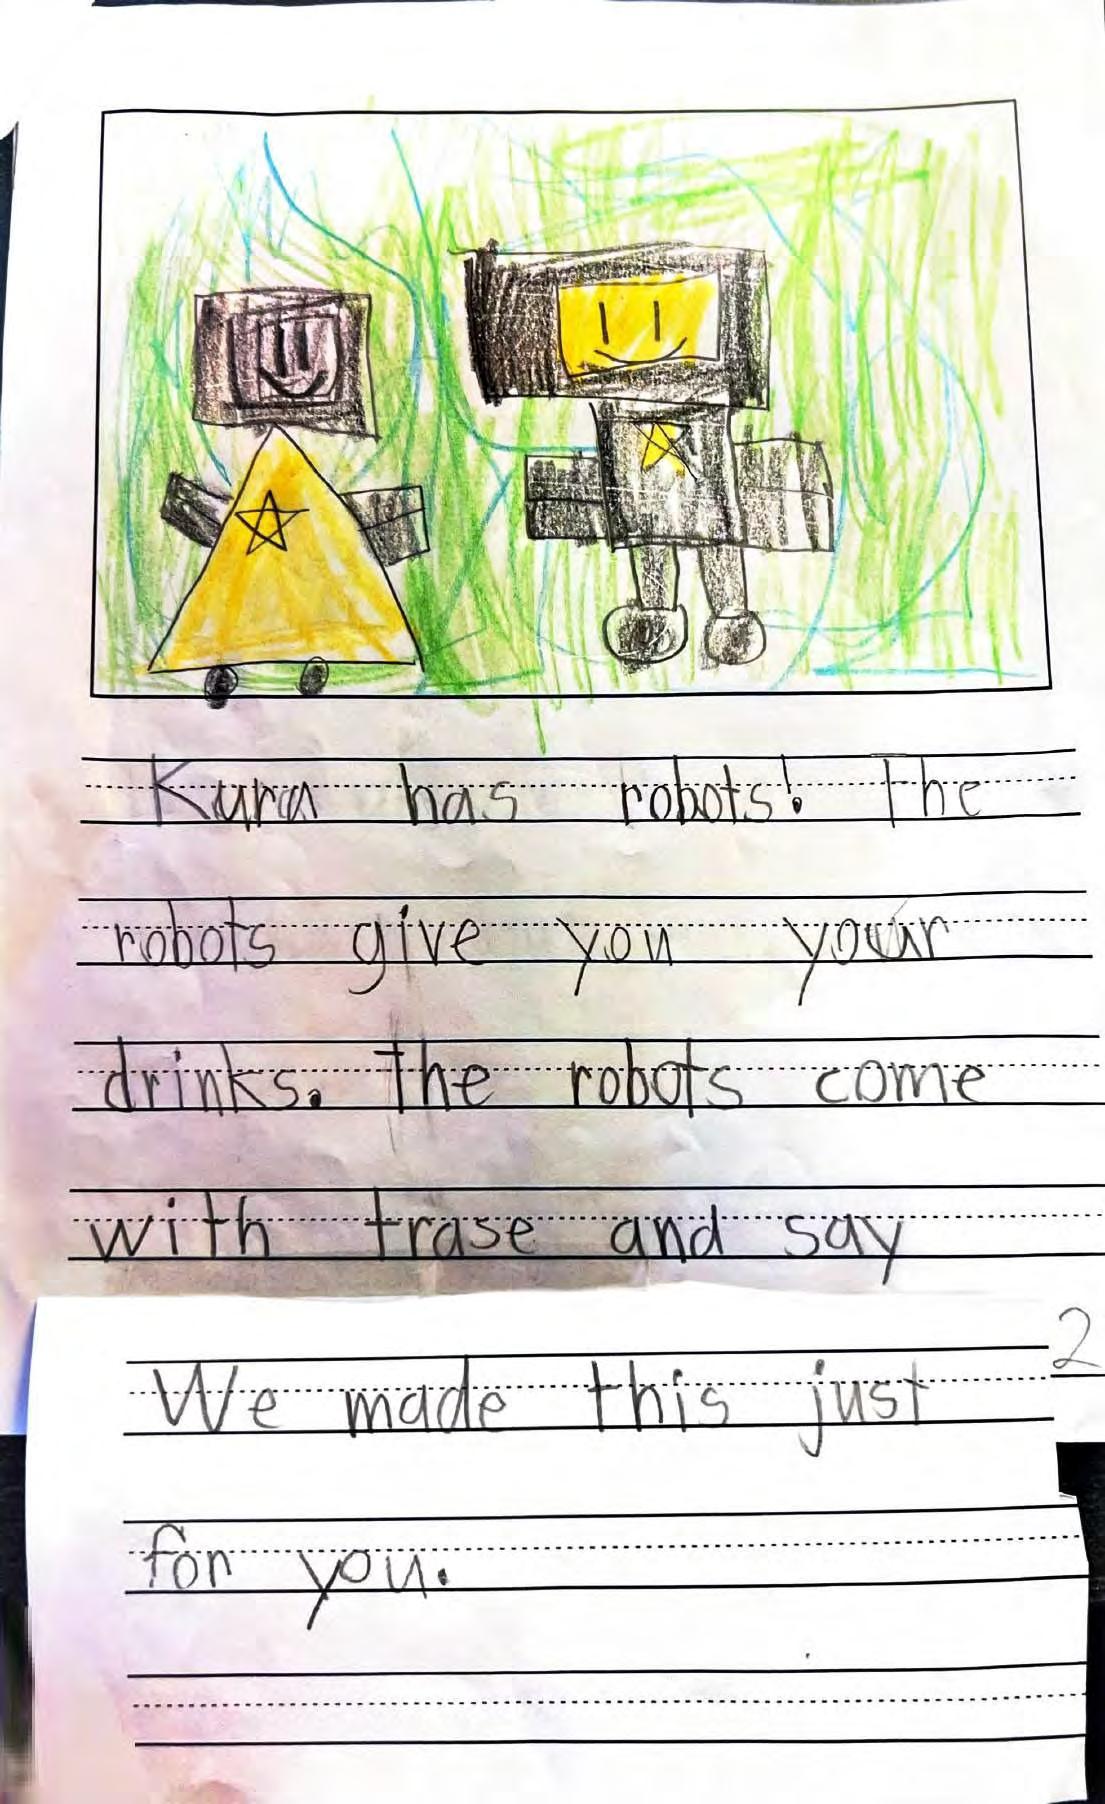 Kura has robots! The
robots give you your
drinks. The robots come
with trase and say
2
We made this just
for you.